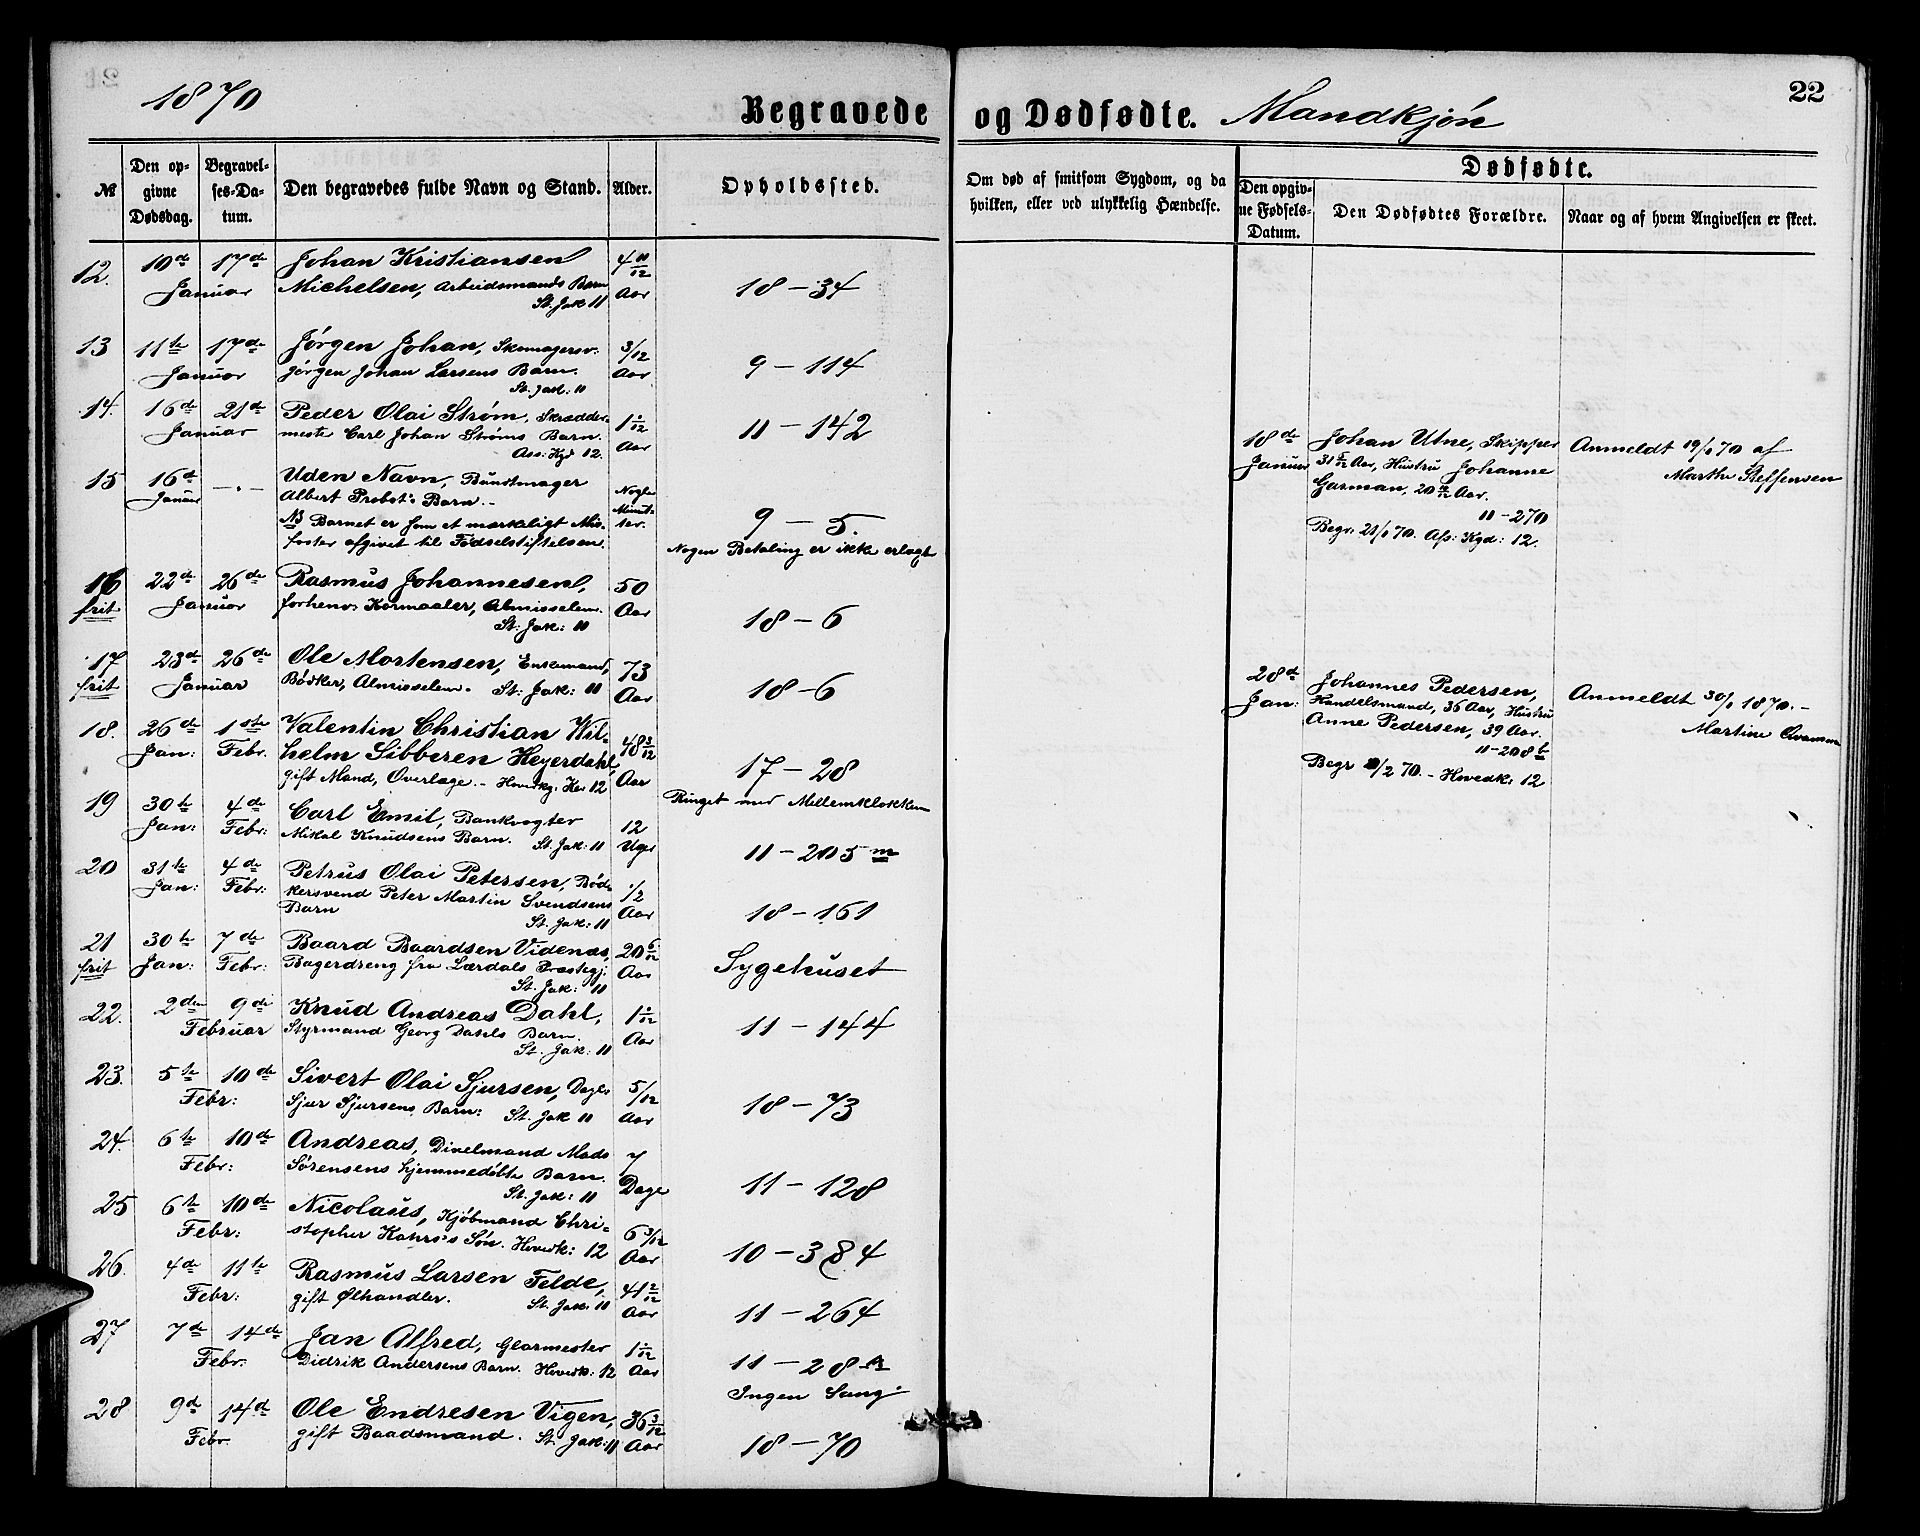 1870
Begravede og Dødfødte. Mandkjøn
22
№
Den opgivne Dødsdag.
Begravelses-Datum.
Den begravedes fulde Navn og Stand.
Alder.
Opholdssted.
Om død af smitsom Sygdom, og da hvilken, eller ved ulykkelig Hændelse.
Dødfødte.
Den opgivne Fødsels-Datum.
Den Dødfødtes Forældre.
Naar og af hvem Angivelsen er skeet.
12. 10de 17de Johan Kristiansen 4 11/12
Januar Michelsen, Arbeidsmands Barn Aar 18-34
St. Jak 11
13 11te 17de Jørgen Johan, Skomagersv. 3/12
Januar Jørgen Johan Larsens Barn. Aar 9-114
St. Jak: 11
14. 16de 21de Peder Olai Strøm, Skrædder-
Januar mester Carl Johan Strøms Barn. Aar 11-142
Ass: Kgd 12.
15 16de -"- Uden Navn, Bundtmager
Januar Albert Probst's Barn.- Nogle
NB Barnet er som et mærkeligt Mis- Minut- 9-5.
foster afgivet til Fødselstiftelsen. ter. Nogen Betaling er ikke erlagt
16 22de 26de Rasmus Johannesen, 50
frit Januar forhenv. Kornmaaler, Almisselem. Aar 18-6
St: Jak: 11
17 23de 26de Ole Mortensen, Enkemand, 73
frit Januar Bødker, Almisselem. St: Jak: 11 Aar 18-6
18. 26de 1ste Valentin Christian Wil-
Jan: Febr. helm Sibbern Heyerdahl, 48 3/12
gift Mand, Overlæge.- Hovedkg: 12 Aar 17-28
Ringet med Mellemklokken
19 30te 4de Carl Emil, Bankvogter 12
Jan: Febr: Mikal Knudsens Barn. St. Jak: 11 Uger 11-205 m
20 31te 4de Petrus Olai Petersen, Bød- 1/2
Jan: Febr: kersvend Peter Martin Svendsens Aar
Barn St. Jak: 11 18-161
21 30te 7de Baard Baardsen Videnæs, 20 6/12
frit Jan: Febr: Bagerdreng fra Lærdals Præstegj. Aar Sygehuset
St. Jak: 11
22. 2den 9de Knud Andreas Dahl,
Februar Styrmand Georg Dahls Barn. Aar 11-144
St. Jak: 11
23. 5te 10de Sivert Olai Sjursen, Dagl: 5/12
Febr: Sjur Sjursens Barn: St. Jak 11 Aar 18-73
24. 6te 10de Andreas, Mads 7
Febr: Sørensens hjemmedøbte Barn. Dage 11-128
St. Jak: 11
25 6te 10de Nicolaus, Kjøbmand Chri-
Febr: stopher Kahrs's Søn. Hovedk: 12 6 3/12 Aar 10-384
26. 4de 11te Rasmus Larsen Felde, 41 2/12
Febr: gift Ølhandler. St. Jak: 11 Aar 11-264
27 7de 14de Jan Alfred, Glarmester
Febr. Didrik Andersens Barn. Hovedk: 12 Aar 11-28
Ingen Sang.
28 9de 14de Ole Endresen Vigen, 36 3/12
Febr. gift Baadsmand. St. Jak: 11 Aar 18-70
18de Johan Utne, Skipper Anmeldt 19/1 70 af
Januar 31 Aar, Hustru Johanne Marthe Steffensen
Garman, 20 Aar.
11-270
Begr. 21/1 70. Ass: Kgd: 12.
28de Johannes Pedersen,
Jan: Handelsmand, 36 Aar, Hustru Anmeldt 30/1 1870.-
Anne Pedersen, 39 Aar. Martine
11-208 b
Begr /2 70.- Hovedk: 12